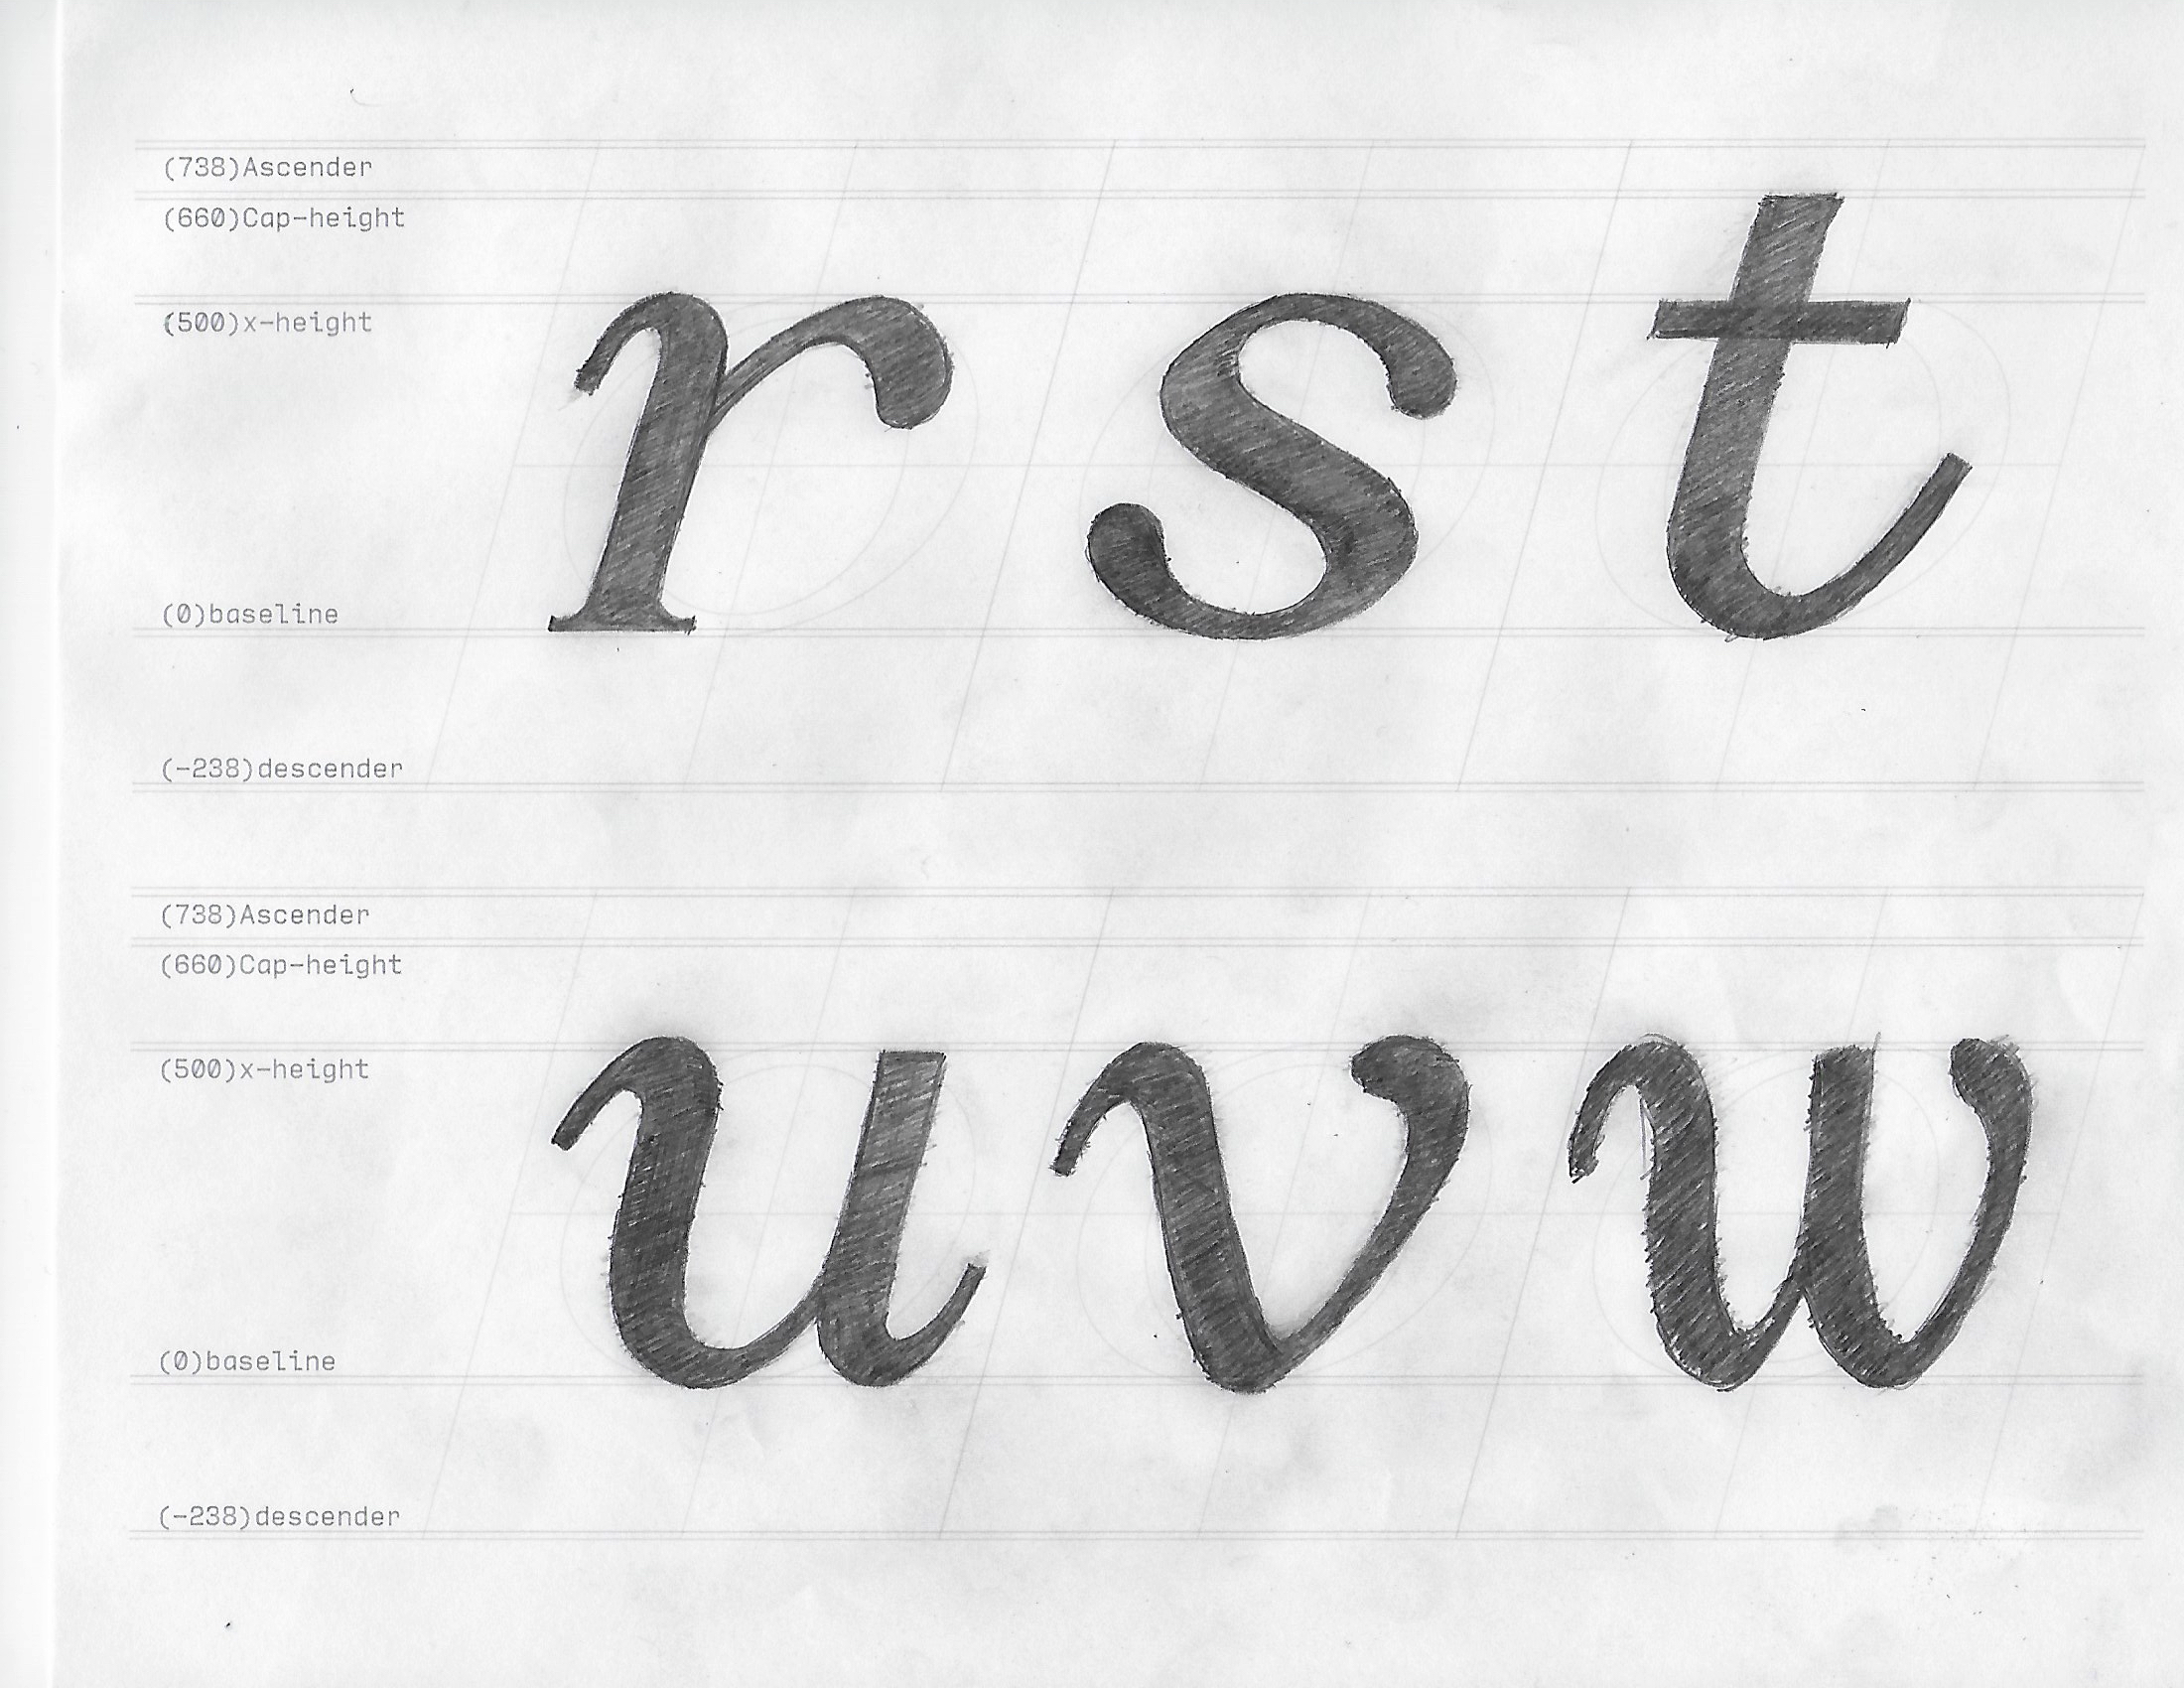 (738)Ascender
(660)Cap-height
(500)x-height
r s t
(0)baseline
(-238)descender
(738)Ascender
(660)Cap-height
(500)x-height
u v w
(0)baseline
(-238)descender